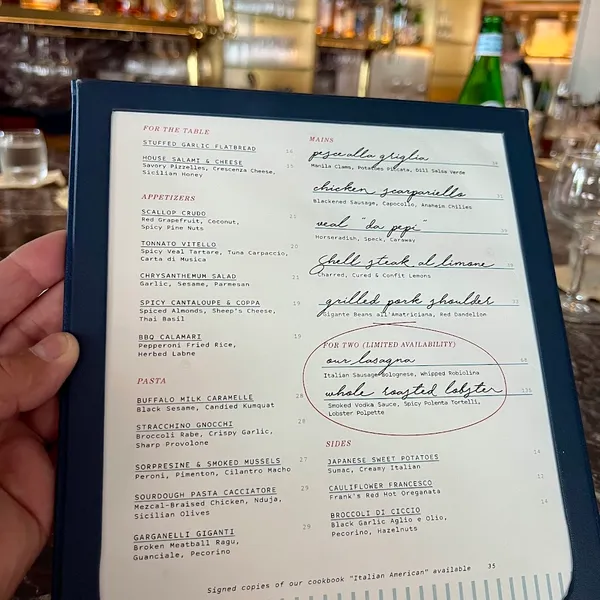 FOR THE TABLE
STUFFED GARLIC FLATBREAD 18
HOUSE SALAMI & CHEESE
Savory Pizzelles, Crescenza Cheese,
Sicilian Honey
APPETIZERS
SCALLOP CRUDO 21
Red Grapefruit, Coconut,
Spicy Pine Nuts
TONNATO VITELLO 20
Spicy Veal Tartare, Tuna Carpaccio,
Carta di Musica
CHRYSANTHEMUM SALAD 21
Garlic, Sesame, Parmesan
SPICY CANTALOUPE & COPPA 19
Spiced Almonds, Sheep's Cheese,
Thai Basil
BBQ CALAMARI 19
Pepperoni Fried Rice,
Herbed Labne
PASTA
BUFFALO MILK CARAMELLE 28
Black Sesame, Candied Kumquat
STRACCHINO GNOCCHI 28
Broccoli Rabe, Crispy Garlic,
Sharp Provolone
SORPRESINE & SMOKED MUSSELS 27
Peroni, Pimenton, Cilantro Macho
SOURDOUGH PASTA CACCIATORE 29
Mezcal-Braised Chicken, Nduja,
Sicilian Olives
GARGANELLI GIGANTI 29
Broken Meatball Ragu,
Guanciale, Pecorino
MAINS
pesce alla griglia
Manila Clams, Potatoes Piccata, Dill Salsa Verde
chicken scarpariello
Blackened Sausage, Capocollo, Anaheim Chilies
veal "da pepi"
Horseradish, Speck, Caraway
shell steak al limone
Charred, Cured & Confit Lemons
grilled pork shoulder
Gigante Beans all'Amatriciana, Red Dandelion
FOR TWO (LIMITED AVAILABILITY)
our lasagna 68
Italian Sausage Bolognese, Whipped Robiolina
whole roasted lobster
Smoked Vodka Sauce, Spicy Polenta Tortelli,
Lobster Polpette
SIDES
JAPANESE SWEET POTATOES 14
Sumac, Creamy Italian
CAULIFLOWER FRANCESCO
Frank's Red Hot Oreganata
BROCCOLI DI CICCIO 14
Black Garlic Aglio e Olio,
Pecorino, Hazelnuts
Signed copies of our cookbook "Italian American" available 35